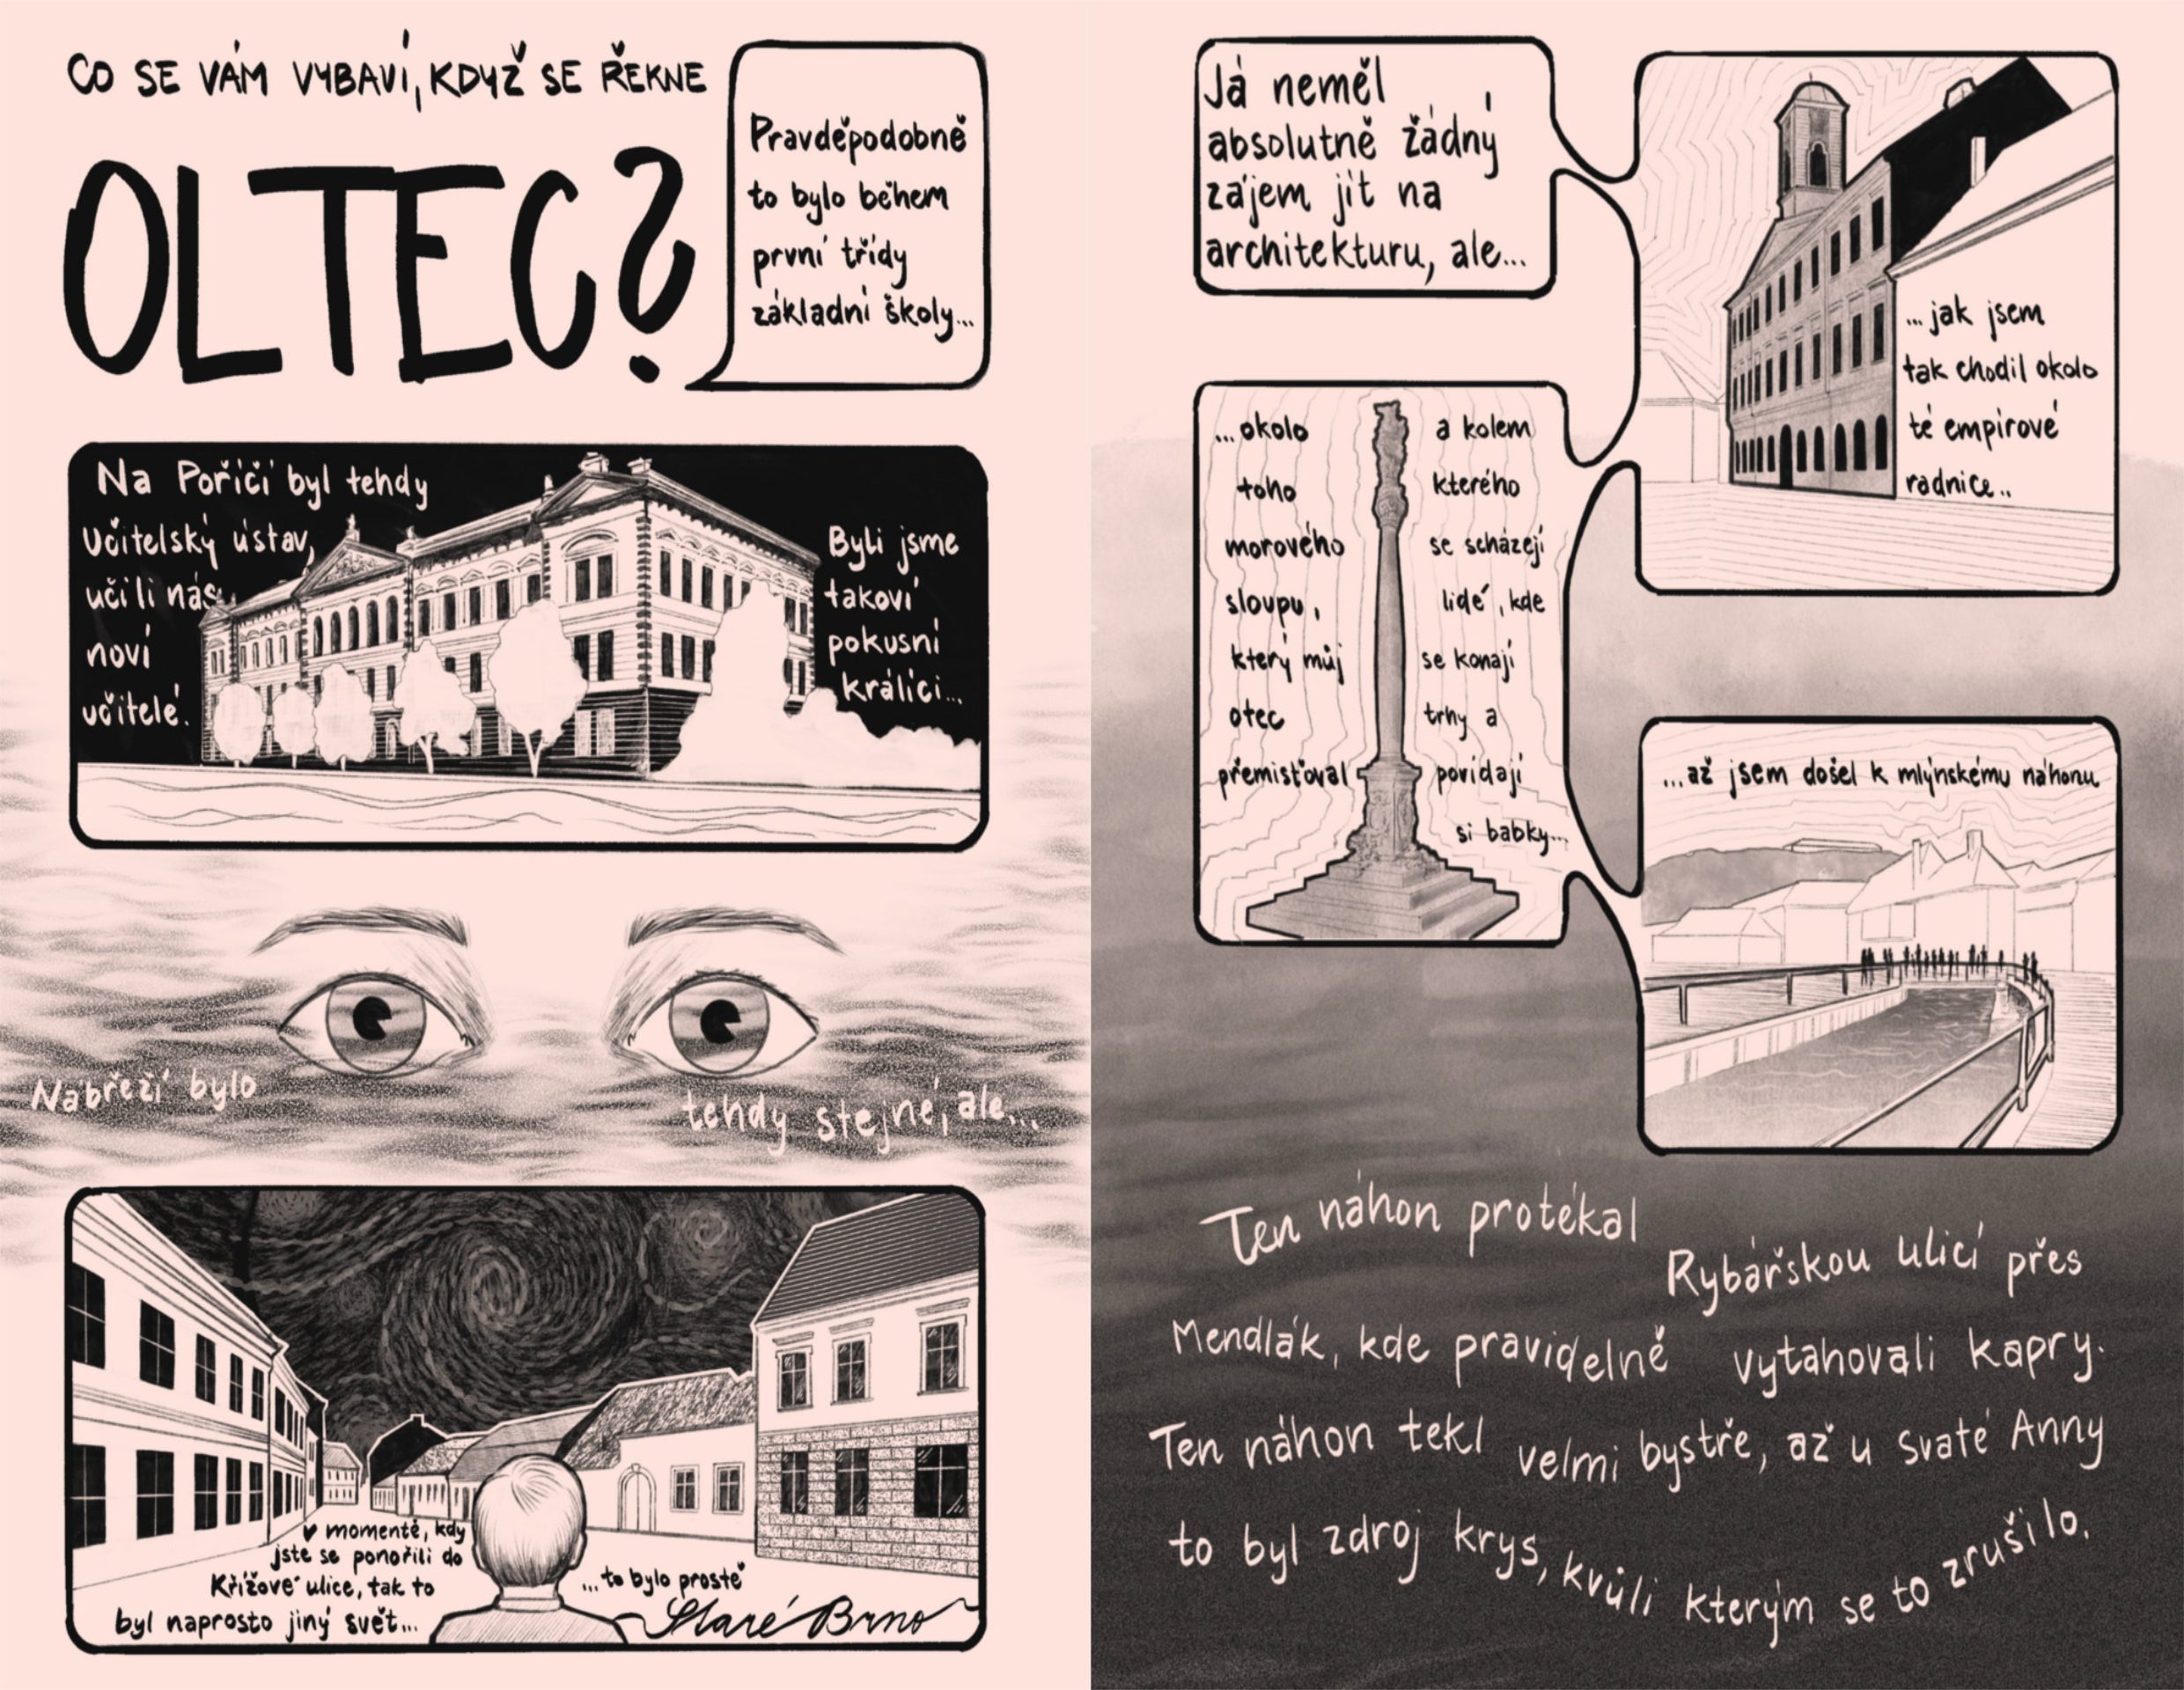 CO SE VÁM VYBAVÍ, KDYŽ SE ŘEKNE
OLTEC?
Pravděpodobně
to bylo během
první třídy
základní školy...
Na Poříčí byl tehdy
Učitelský ústav,
učili nás
noví
učitelé.
Byli jsme
takoví
pokusní
králíci...
Nábřeží bylo
tehdy stejné, ale...
V momentě, kdy
jste se ponořili do
Křížové ulice, tak to
byl naprosto jiný svět...
...to bylo prostě
Staré Brno
Já neměl
absolutně žádný
zájem jít na
architekturu, ale...
...jak jsem
tak chodil okolo
té empírové
radnice..
...okolo
toho
morového
sloupu,
který můj
otec
přemisťoval
a kolem
kterého
se scházejí
lidé, kde
se konají
trhy a
povídají
si babky...
...až jsem došel k mlýnskému náhonu
Ten náhon protékal
Rybářskou ulicí přes
Mendlák, kde pravidelně vytahovali kapry.
Ten náhon tekl velmi bystře, až u Svaté Anny
to byl zdroj krys, kvůli kterým se to zrušilo.